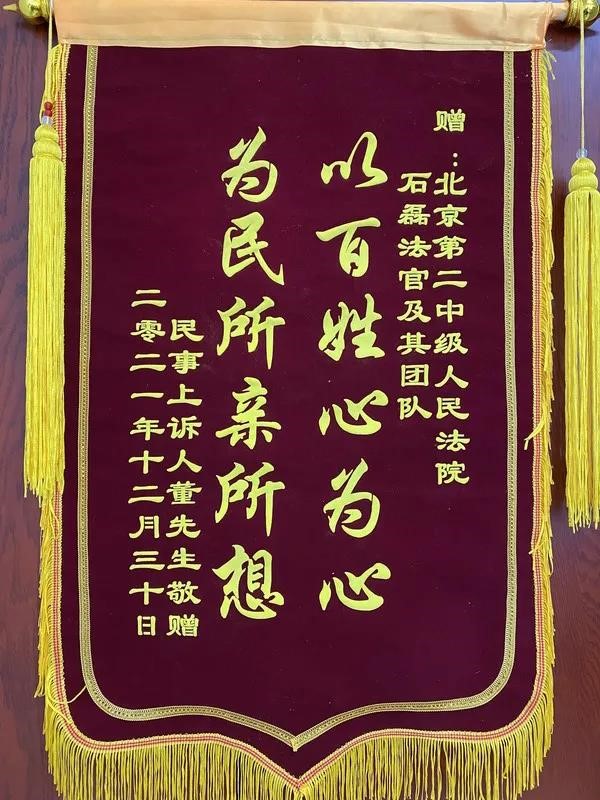 赠：北京第二中级人民法院
石磊法官及其团队
以百姓心为心
为民所亲所想
民事上诉人董先生敬赠
二零二一年十二月三十日